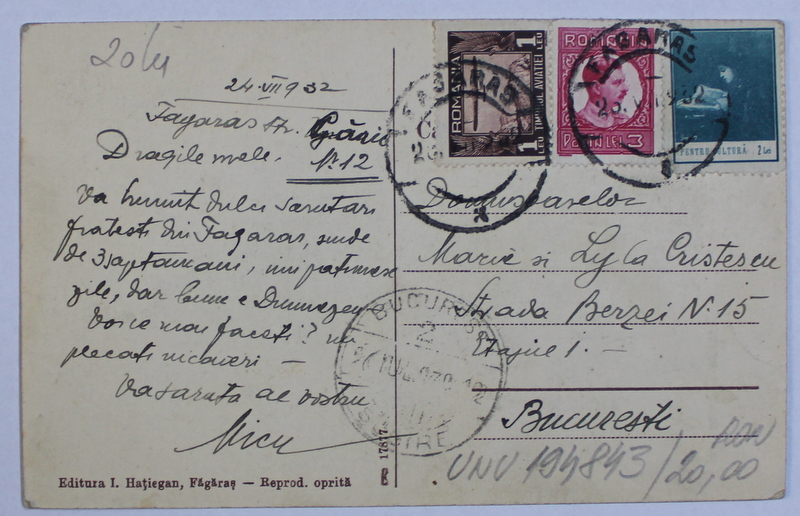 20 lei
24.VII 932
Fagaras str. Gării
Nº 12
Dragile mele.
Va trimit dulci sarutari
fratesti din Fagaras, unde
de 3 saptamani, imi petrec
zile, dar bun e Dumnezeu
Voi ce mai faceti? nu
plecati nicaieri —
Va saruta al vostru
Nicu
Editura I. Hațiegan, Făgăraș — Reprod. oprită
17877
ROMANIA
1 LEU TIMBRUL AVIATIEI 1 LEU
ROMANIA
3 LEI 3
PENTRU CULTURĂ 2 Lei
FAGARAS
FAGARAS
23. VII. 932
Domnisoarelor
Marie si Lyla Cristescu
Strada Berzei N. 15
Etajul 1. —
Bucuresti
BUCURESTI
UNV 194843/20,00
RON